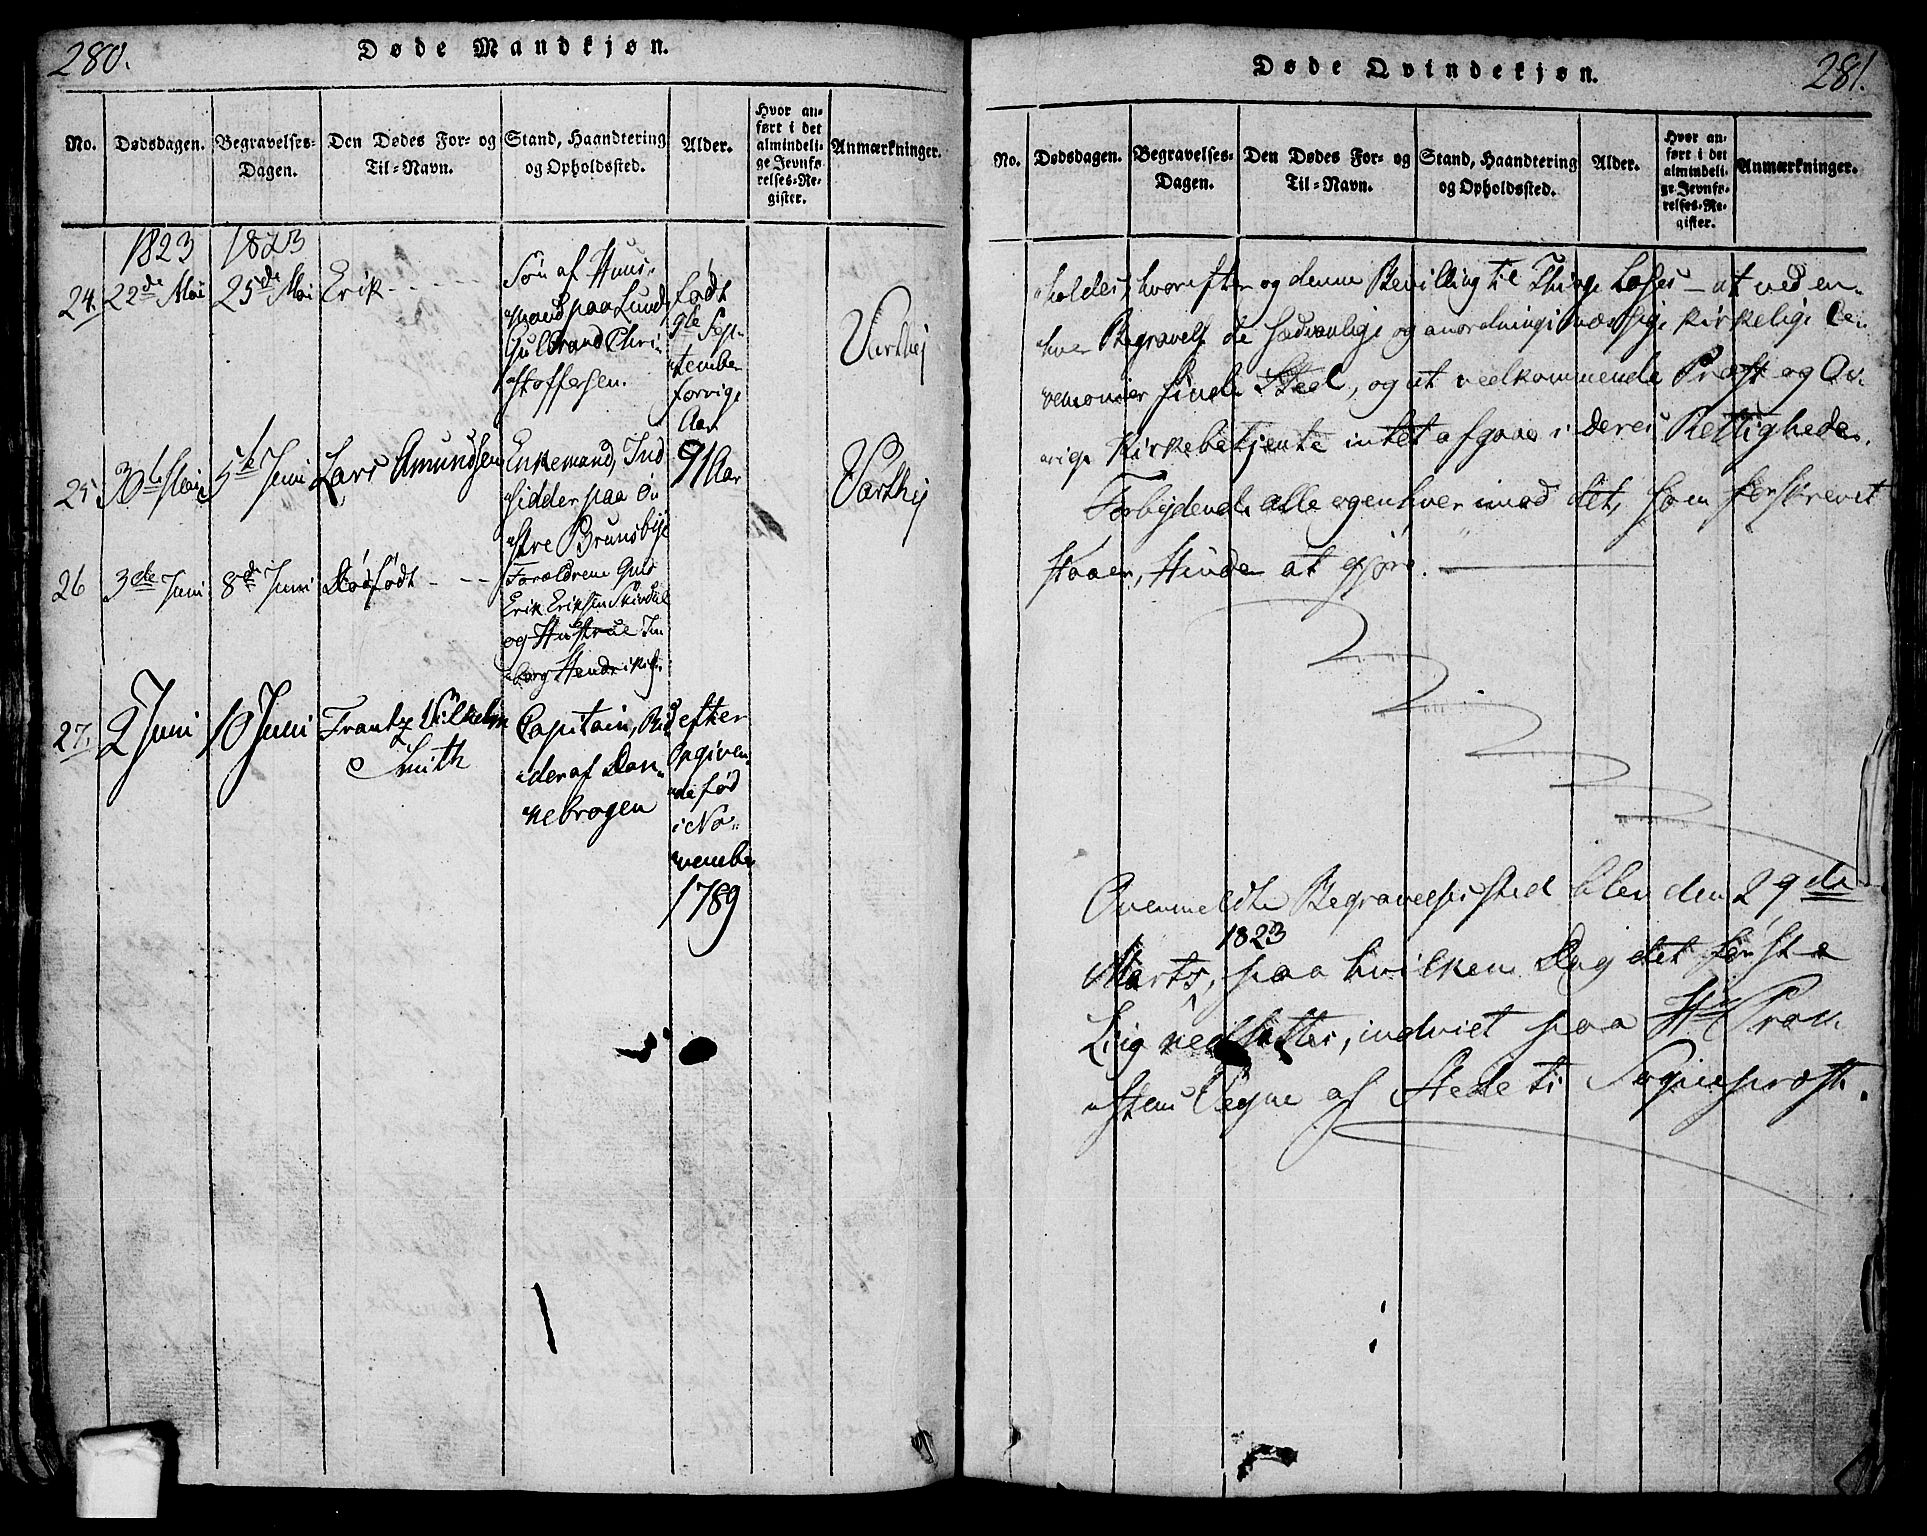 280.
Døde Mandkjøn.
No.
Dødsdagen.
Begravelses-
Dagen.
Den Dødes For- og
Til-Navn.
Stand, Haandtering
og Opholdssted.
Alder.
Hvor an-
ført i det
almindeli-
ge Jevnfø-
relses-Re-
gister.
Anmærkninger.
1823 1823
24. 22de Mai 25de Mai Erik
Søn af Huus-
mand paa Lund
Gulbrand Chri-
stoffersen.
født
9de Sep-
tember
forrige
Aar
Værthej
25 30te Mai 5te Juni Lars Amundsen
Enkemand, Ind
sidder paa Ø
stre Brunsbye
91 Aar
Værthej
26 3de Juni 8de Juni Dødfødt
Forældrene
Erik Eriksen
og Hustrue In
borg Hendriksd.
27. 2 Juni 10 Juni Frantz Wilhelm
Smith
Capitain, Rid
der af Dan-
nebrogen
efter
Opgiven-
de fød
i No-
vember
1789
281.
Døde Qvindekjøn.
No.
Dødsdagen.
Begravelses-
Dagen.
Den Dødes For- og
Til-Navn.
Stand, Haandtering
og Opholdssted.
Alder.
Hvor an-
ført i det
almindeli-
ge Jevnfø-
relses-Re-
gister.
Anmærkninger.
holdes, hvorefter og denne Bevilling til Thinge Læses - at ved en-
hver Begravelse de sædvanlige og anordningsmæssige kirkelige Ce-
remonier finde Sted, og at vedkommende Præst og Øv-
rige Kirkebetjente intet afgaaer i deres Rettigheder.
Forbydende alle og enhver imod det, som forskrevet
staaer, Hinder at gjøre.
Ovenmeldte Begravelsessted blev den 29de
Marts, 1823 paa hvilken Dag det første
Liig nedsattes, indviet paa Hr Prov-
stens Vegne af Stedets Sognepræst.